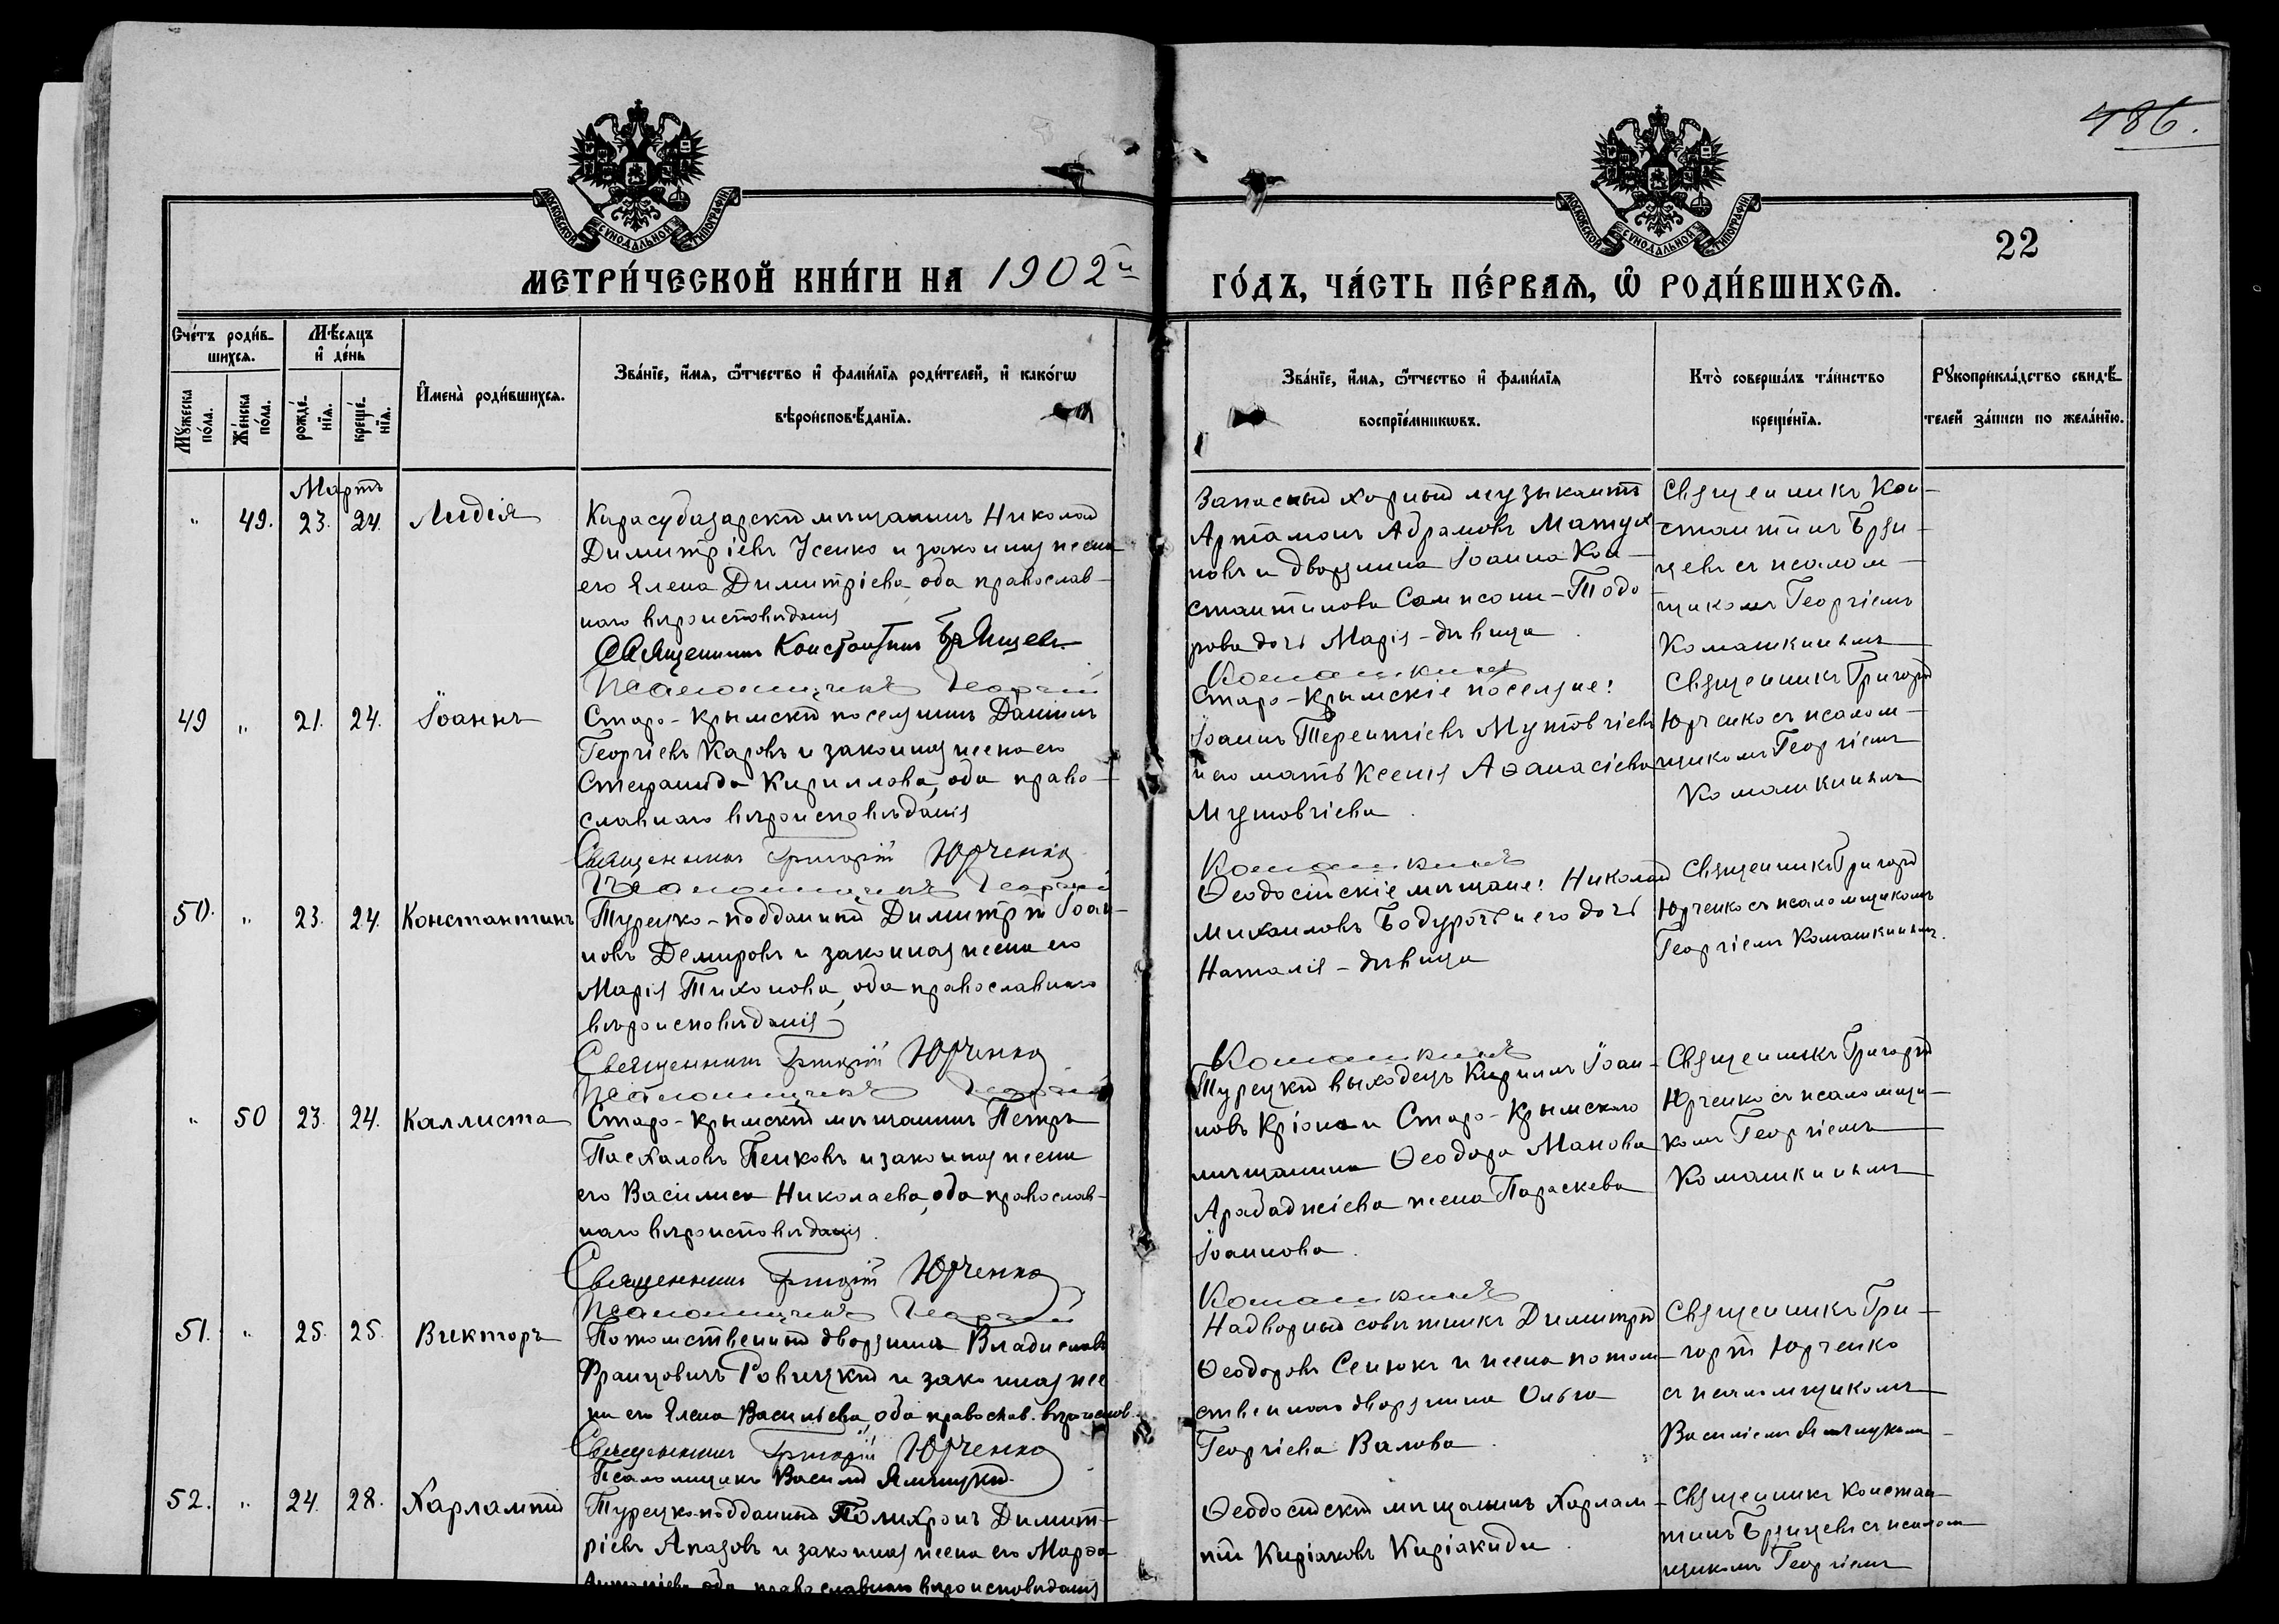 486.
МОСКОВСКОЙ СѴНОДАЛЬНОЙ ТИПОГРАФІИ
МОСКОВСКОЙ СѴНОДАЛЬНОЙ ТИПОГРАФІИ
22
МЕТРИ́ЧЕСКОЙ КНИ́ГИ НА 1902й ГО́ДЪ, ЧА́СТЬ ПЕ́РВАѦ, Ѡ РОДИ́ВШИХСѦ.
Сче́тъ роди́в-
шихсѧ.
Мꙋ́жеска по́ла.
Же́нска по́ла.
Мѣ́сяцъ
и҆ де́нь
рожде́-
нїѧ.
креще́-
нїѧ.
И҆мена̀ роди́вшихсѧ.
Зва́нїе, и҆́мѧ, ѻ҆́тчество и҆ фами́лїѧ роди́телей, и҆ како́гѡ
вѣроисповѣ́данїѧ.
Зва́нїе, и҆́мѧ, ѻ҆́тчество и҆ фами́лїѧ
воспрїе́мникѡвъ.
Кто̀ соверша́лъ та́инство
креще́нїѧ.
Рꙋкоприкла́дство свидѣ́-
телей за́писи по жела́нїю.
Мартъ
" 49. 23. 24. Лидія
Карасубазарскій мѣщанинъ Николай
Димитріевъ Усенко и законная жена
его Елена Димитріева, оба православ-
наго вѣроисповѣданія
Священникъ Константинъ Брянцевъ
Псаломщикъ Георгій Комашкинъ
Запасный хорный музыкантъ
Артамонъ Абрамовъ Матух
новъ и дворянина Іоанна Кон-
стантинова Сампсони-Тодо-
рова дочь Марія - дѣвица.
Священникъ Кон-
стантинъ Брян-
цевъ съ псалом-
щикомъ Георгіемъ
Комашкинымъ
49 " 21. 24. Іоаннъ
Старо-Крымскій поселянинъ Даніилъ
Георгіевъ Каровъ и законная жена его
Стефанида Кириллова, оба право-
славнаго вѣроисповѣданія
Священникъ Григорій Юрченко
Псаломщикъ Георгій Комашкинъ
Старо-Крымскіе поселяне:
Іоаннъ Терентіевъ Мутовчіевъ
и его мать Ксенія Аѳанасіева
Мутовчіева.
Священникъ Григорій
Юрченко съ псалом-
щикомъ Георгіемъ
Комашкинымъ
50. " 23. 24. Константинъ
Турецко-подданный Димитрій Іоан-
новъ Демировъ и законная жена его
Марія Тихонова, оба православнаго
вѣроисповѣданія
Священникъ Григорій Юрченко
Псаломщикъ Георгій Комашкинъ
Ѳеодосійскіе мѣщане: Николай
Михаиловъ Бодурогъ и его дочь
Наталія - дѣвица
Священникъ Григорій
Юрченко съ псаломщикомъ
Георгіемъ Комашкинымъ.
" 50 23. 24. Каллиста
Старо-Крымскій мѣщанинъ Петръ
Пасхаловъ Пенковъ и законная жена
его Василиса Николаева, оба православ-
наго вѣроисповѣданія.
Священникъ Григорій Юрченко
Псаломщикъ Георгій Комашкинъ
Турецкій выходецъ Кириллъ Іоан-
новъ Кріона и Старо-Крымскаго
мѣщанина Ѳеодора Манова
Арабаджіева жена Параскева
Іоаннова.
Священникъ Григорій
Юрченко съ псаломщи-
комъ Георгіемъ
Комашкинымъ
51. " 25. 25. Викторъ
Потомственный дворянинъ Владиславъ
Францовичъ Ровицкій и законная же-
на его Елена Васильева, оба православ. вѣроиспов.
Священникъ Григорій Юрченко
Псаломщикъ Василій Ялницкій
Надворный совѣтникъ Димитрій
Ѳеодоровъ Сенюкъ и жена потом-
ственнаго дворянина Ольга
Георгіева Валова.
Священникъ Гри-
горій Юрченко
съ псаломщикомъ
Василіемъ
52. " 24. 28. Харлампій
Турецко-подданный Полихронъ Димит-
ріевъ Апазовъ и законная жена его Марѳа
Антоніева, оба православнаго вѣроисповѣданія
Ѳеодосійскій мѣщанинъ Харлам-
пій Киріаковъ Киріакиди.
Священникъ Констан-
тинъ Брянцевъ съ псалом-
щикомъ Георгіемъ